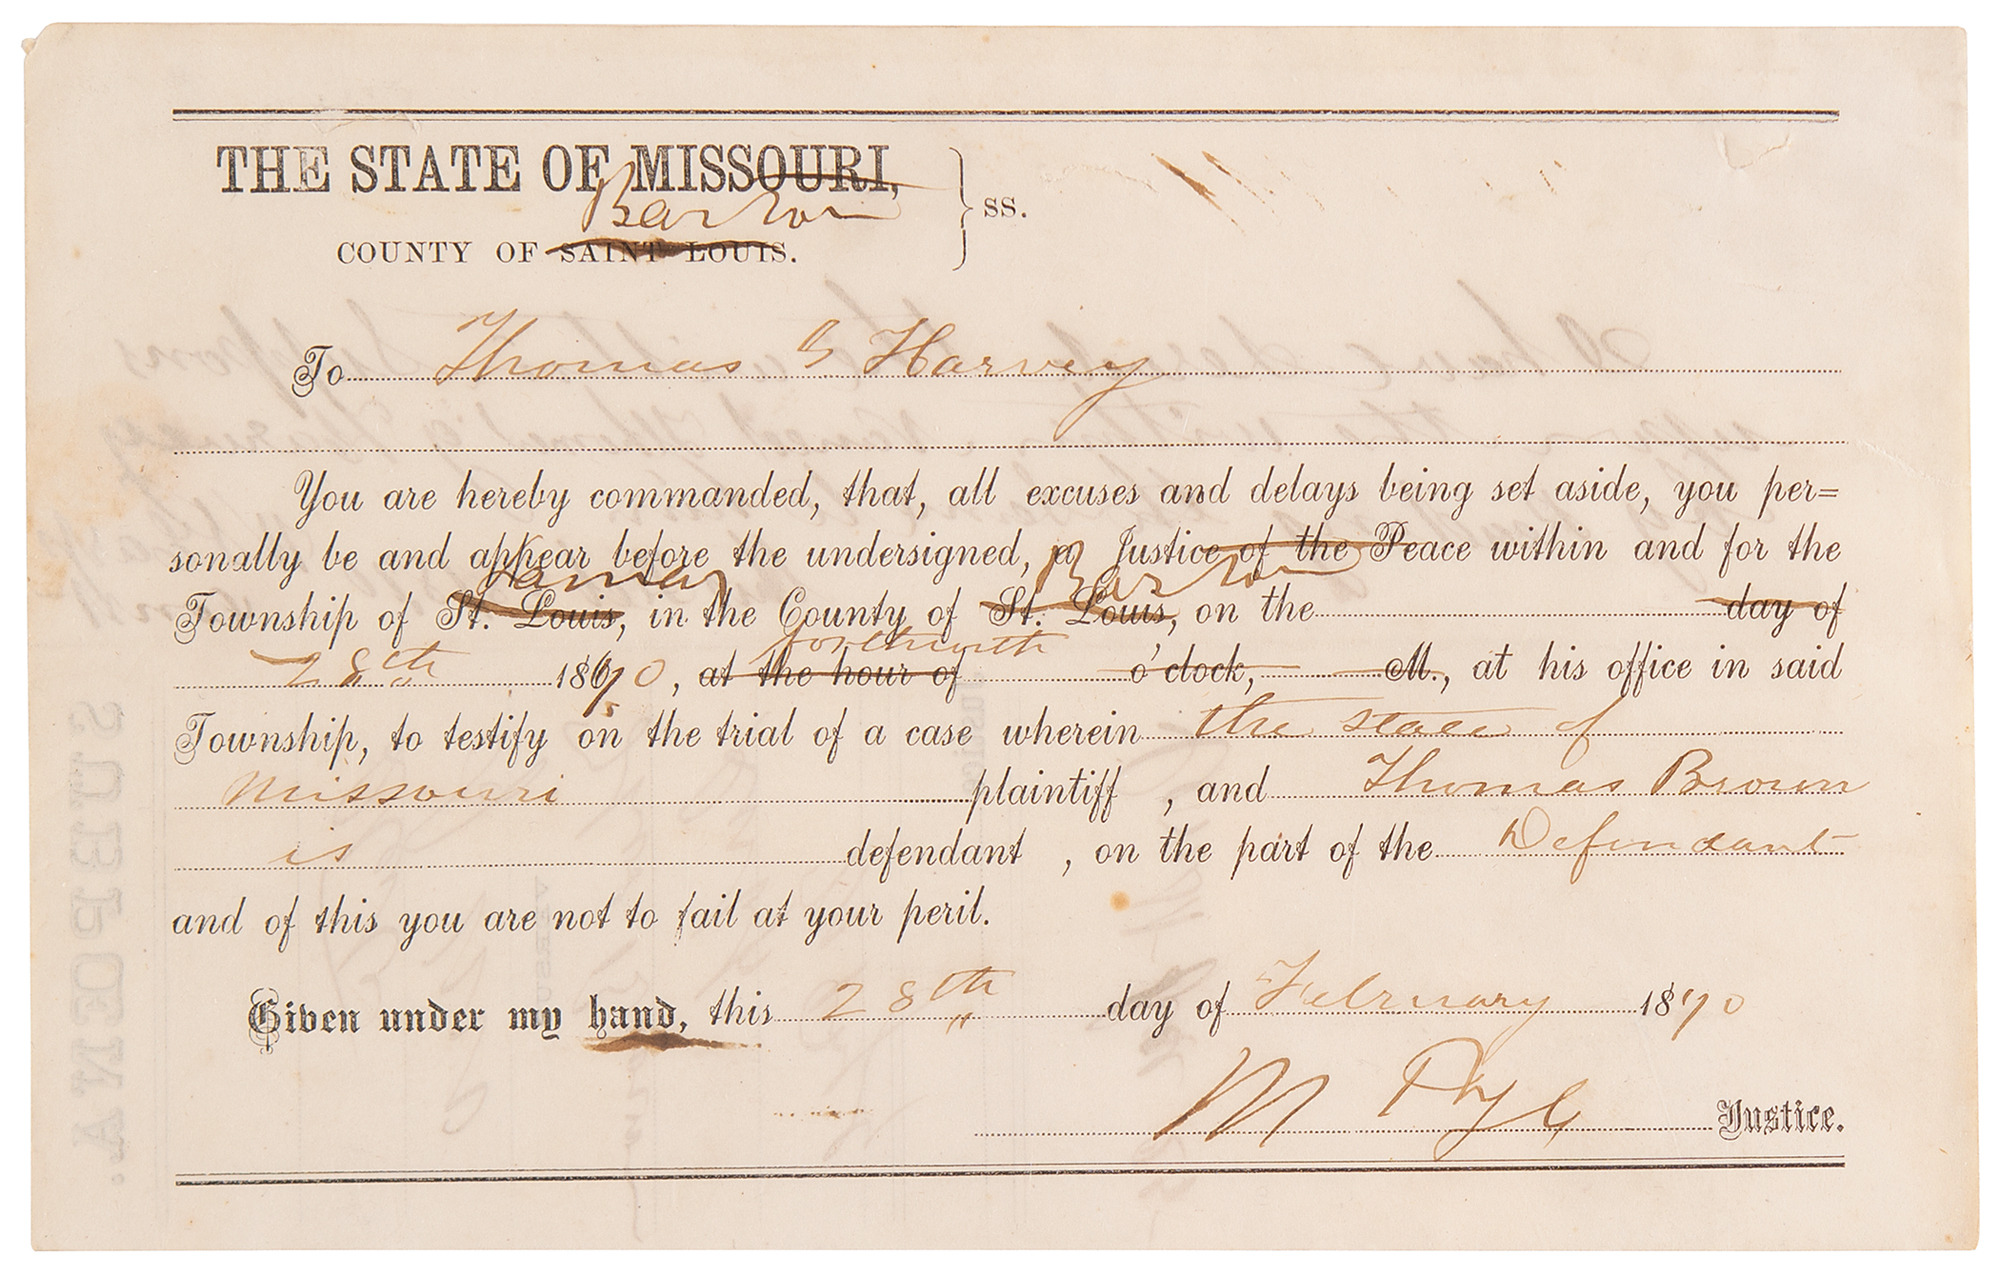 THE STATE OF MISSOURI,
Barton
COUNTY OF SAINT LOUIS.
} ss.
To Thomas G Harvey
You are hereby commanded, that, all excuses and delays being set aside, you per=
sonally be and appear before the undersigned, a Justice of the Peace within and for the
Lamar Barton
Township of St. Louis, in the County of St. Louis, on the day of
forthwith
28th 1870, at the hour of o'clock, M., at his office in said
Township, to testify on the trial of a case wherein the State of
Missouri plaintiff, and Thomas Brown
is defendant, on the part of the Defendant
and of this you are not to fail at your peril.
Given under my hand, this 28th day of February 1870
Justice.
SUBPOENA.